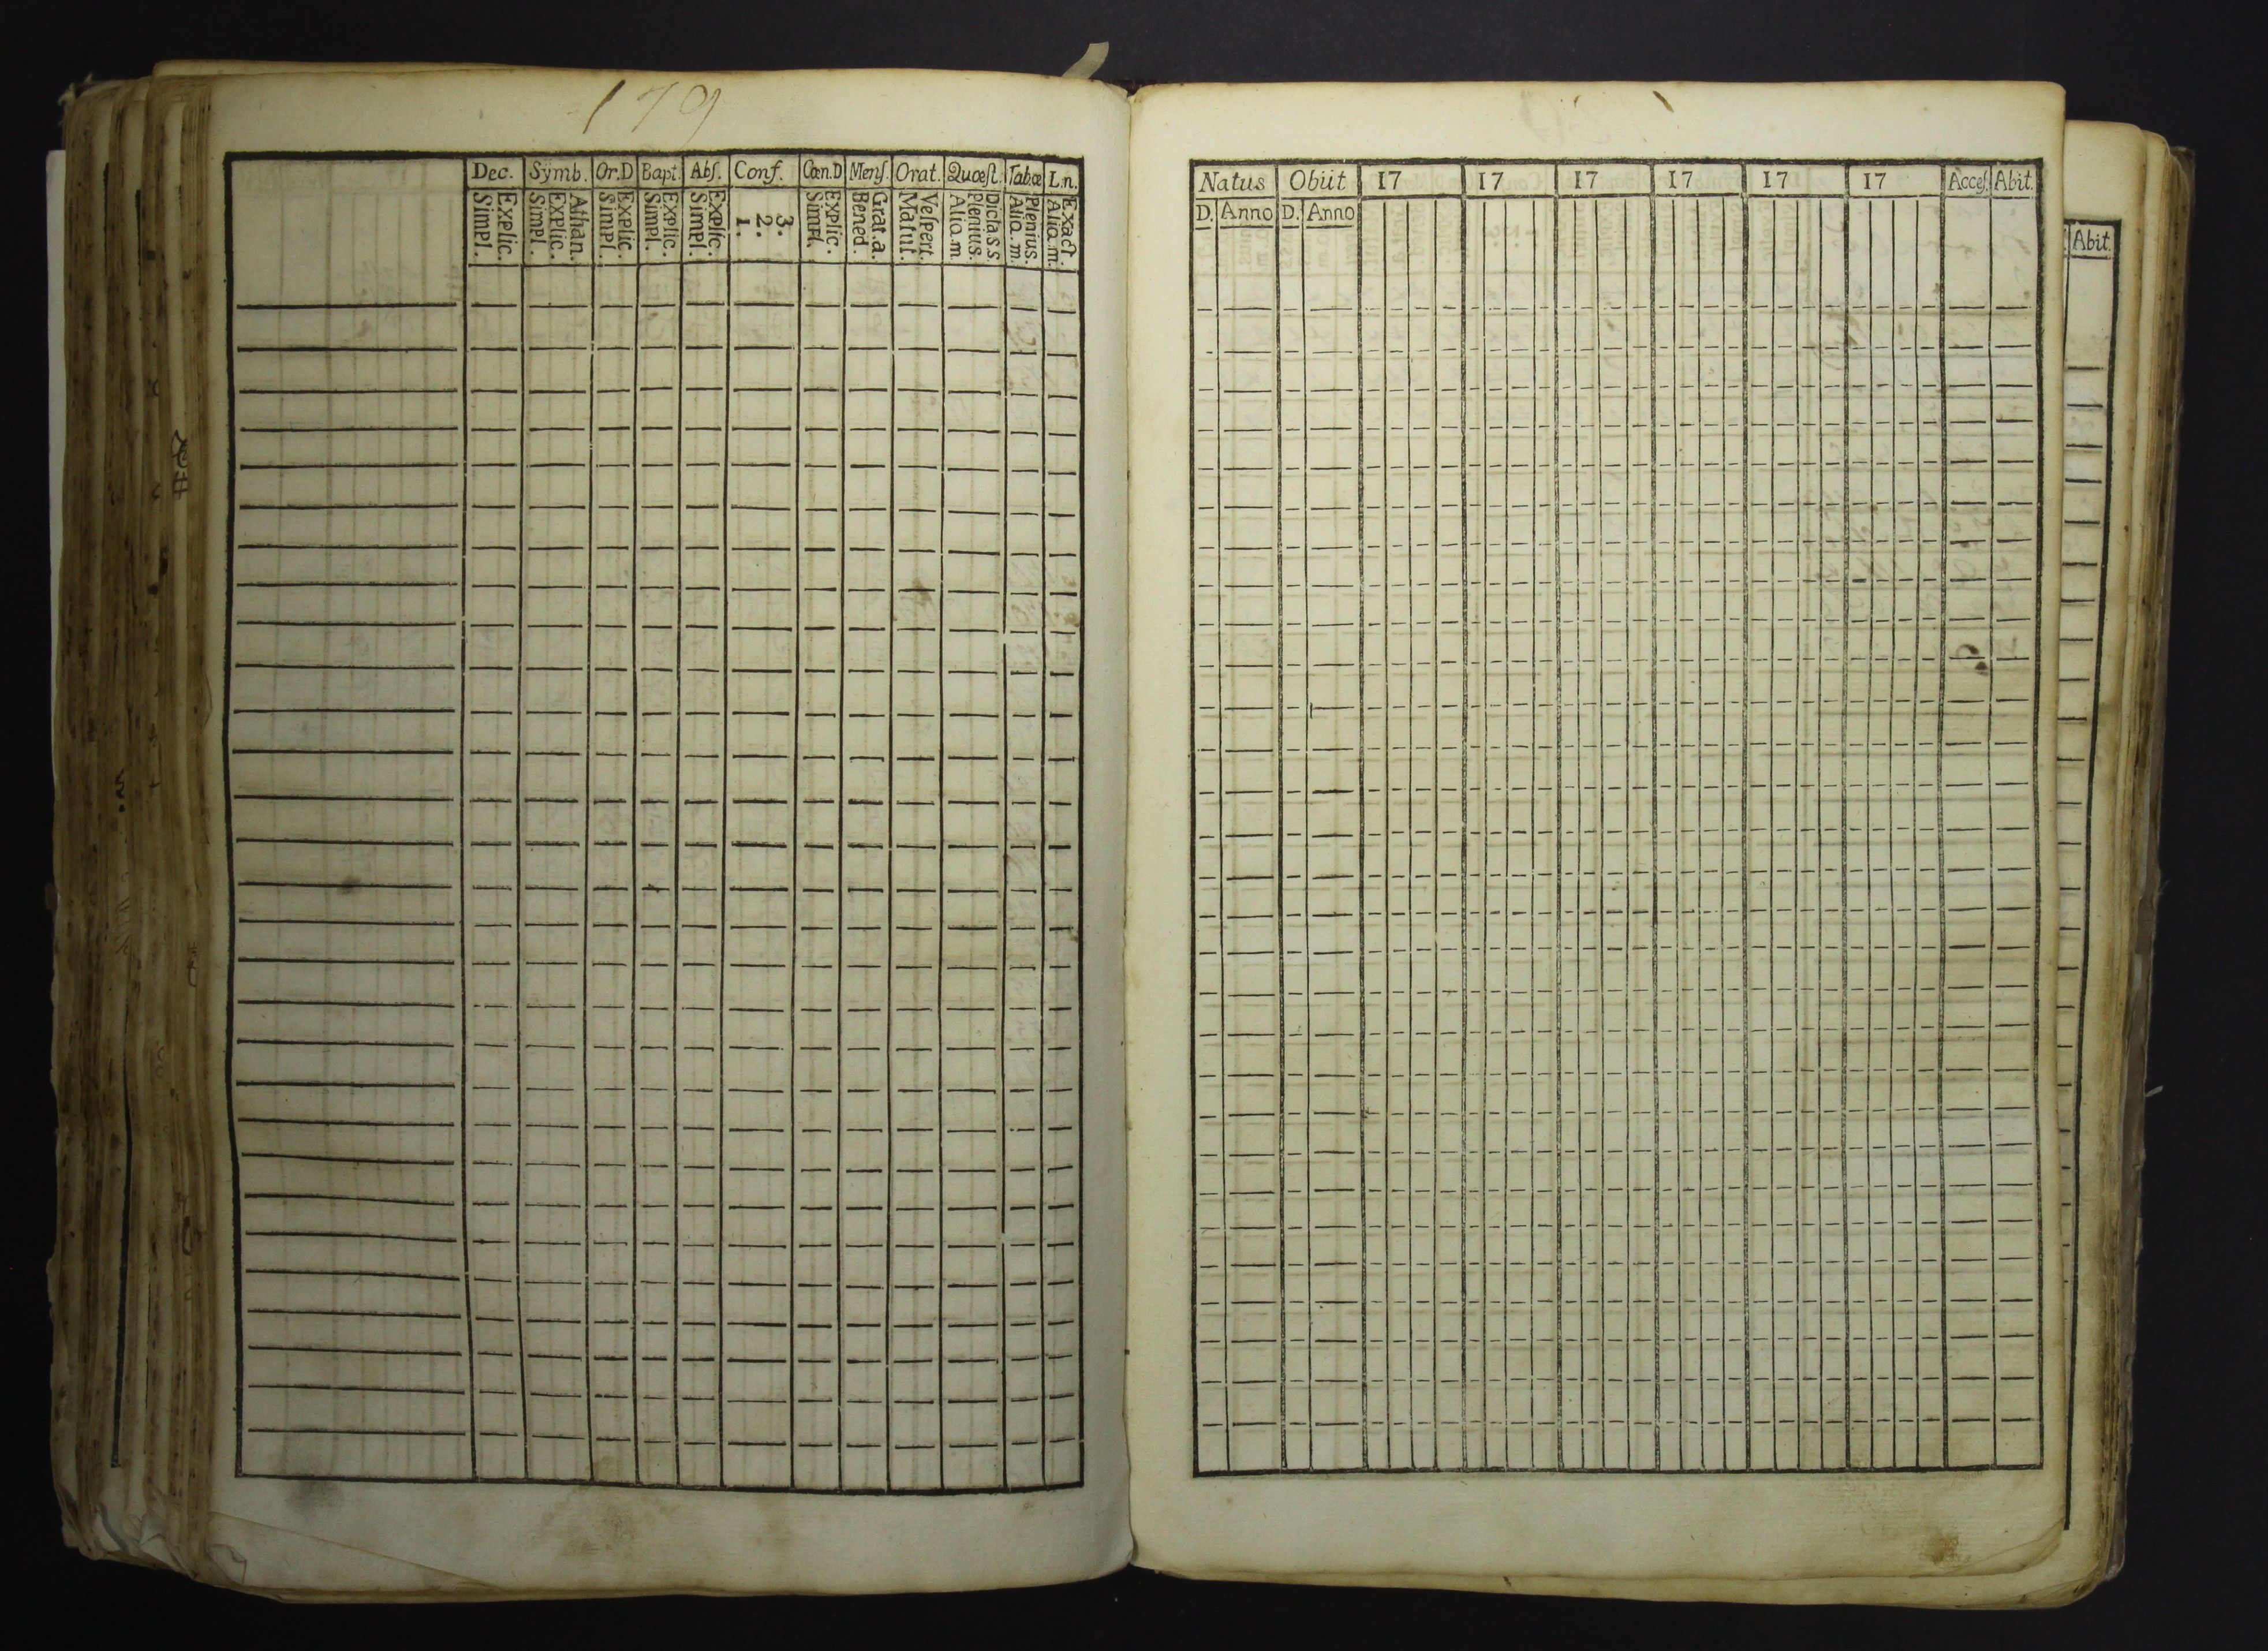 179
Dec. Sÿmb. Or.D Bapt. Abſ. Conf. Cœn.D Menſ. Orat. Quœſt. Tab.œ L.n.
Explic.
Simpl.
Athan.
Explic.
Simpl.
Explic.
Simpl.
Explic.
Simpl.
Explic.
Simpl.
3.
2.
1.
Explic.
Simpl.
Grat.a.
Bened.
Veſpert.
Matut.
Dicta S.S.
Plenius.
Aliq.m.
Plenius.
Aliq.m.
Exact.
Aliq.m.
Natus Obiit 17 17 17 17 17 17 Acceſ. Abit.
D. Anno D. Anno
Abit.